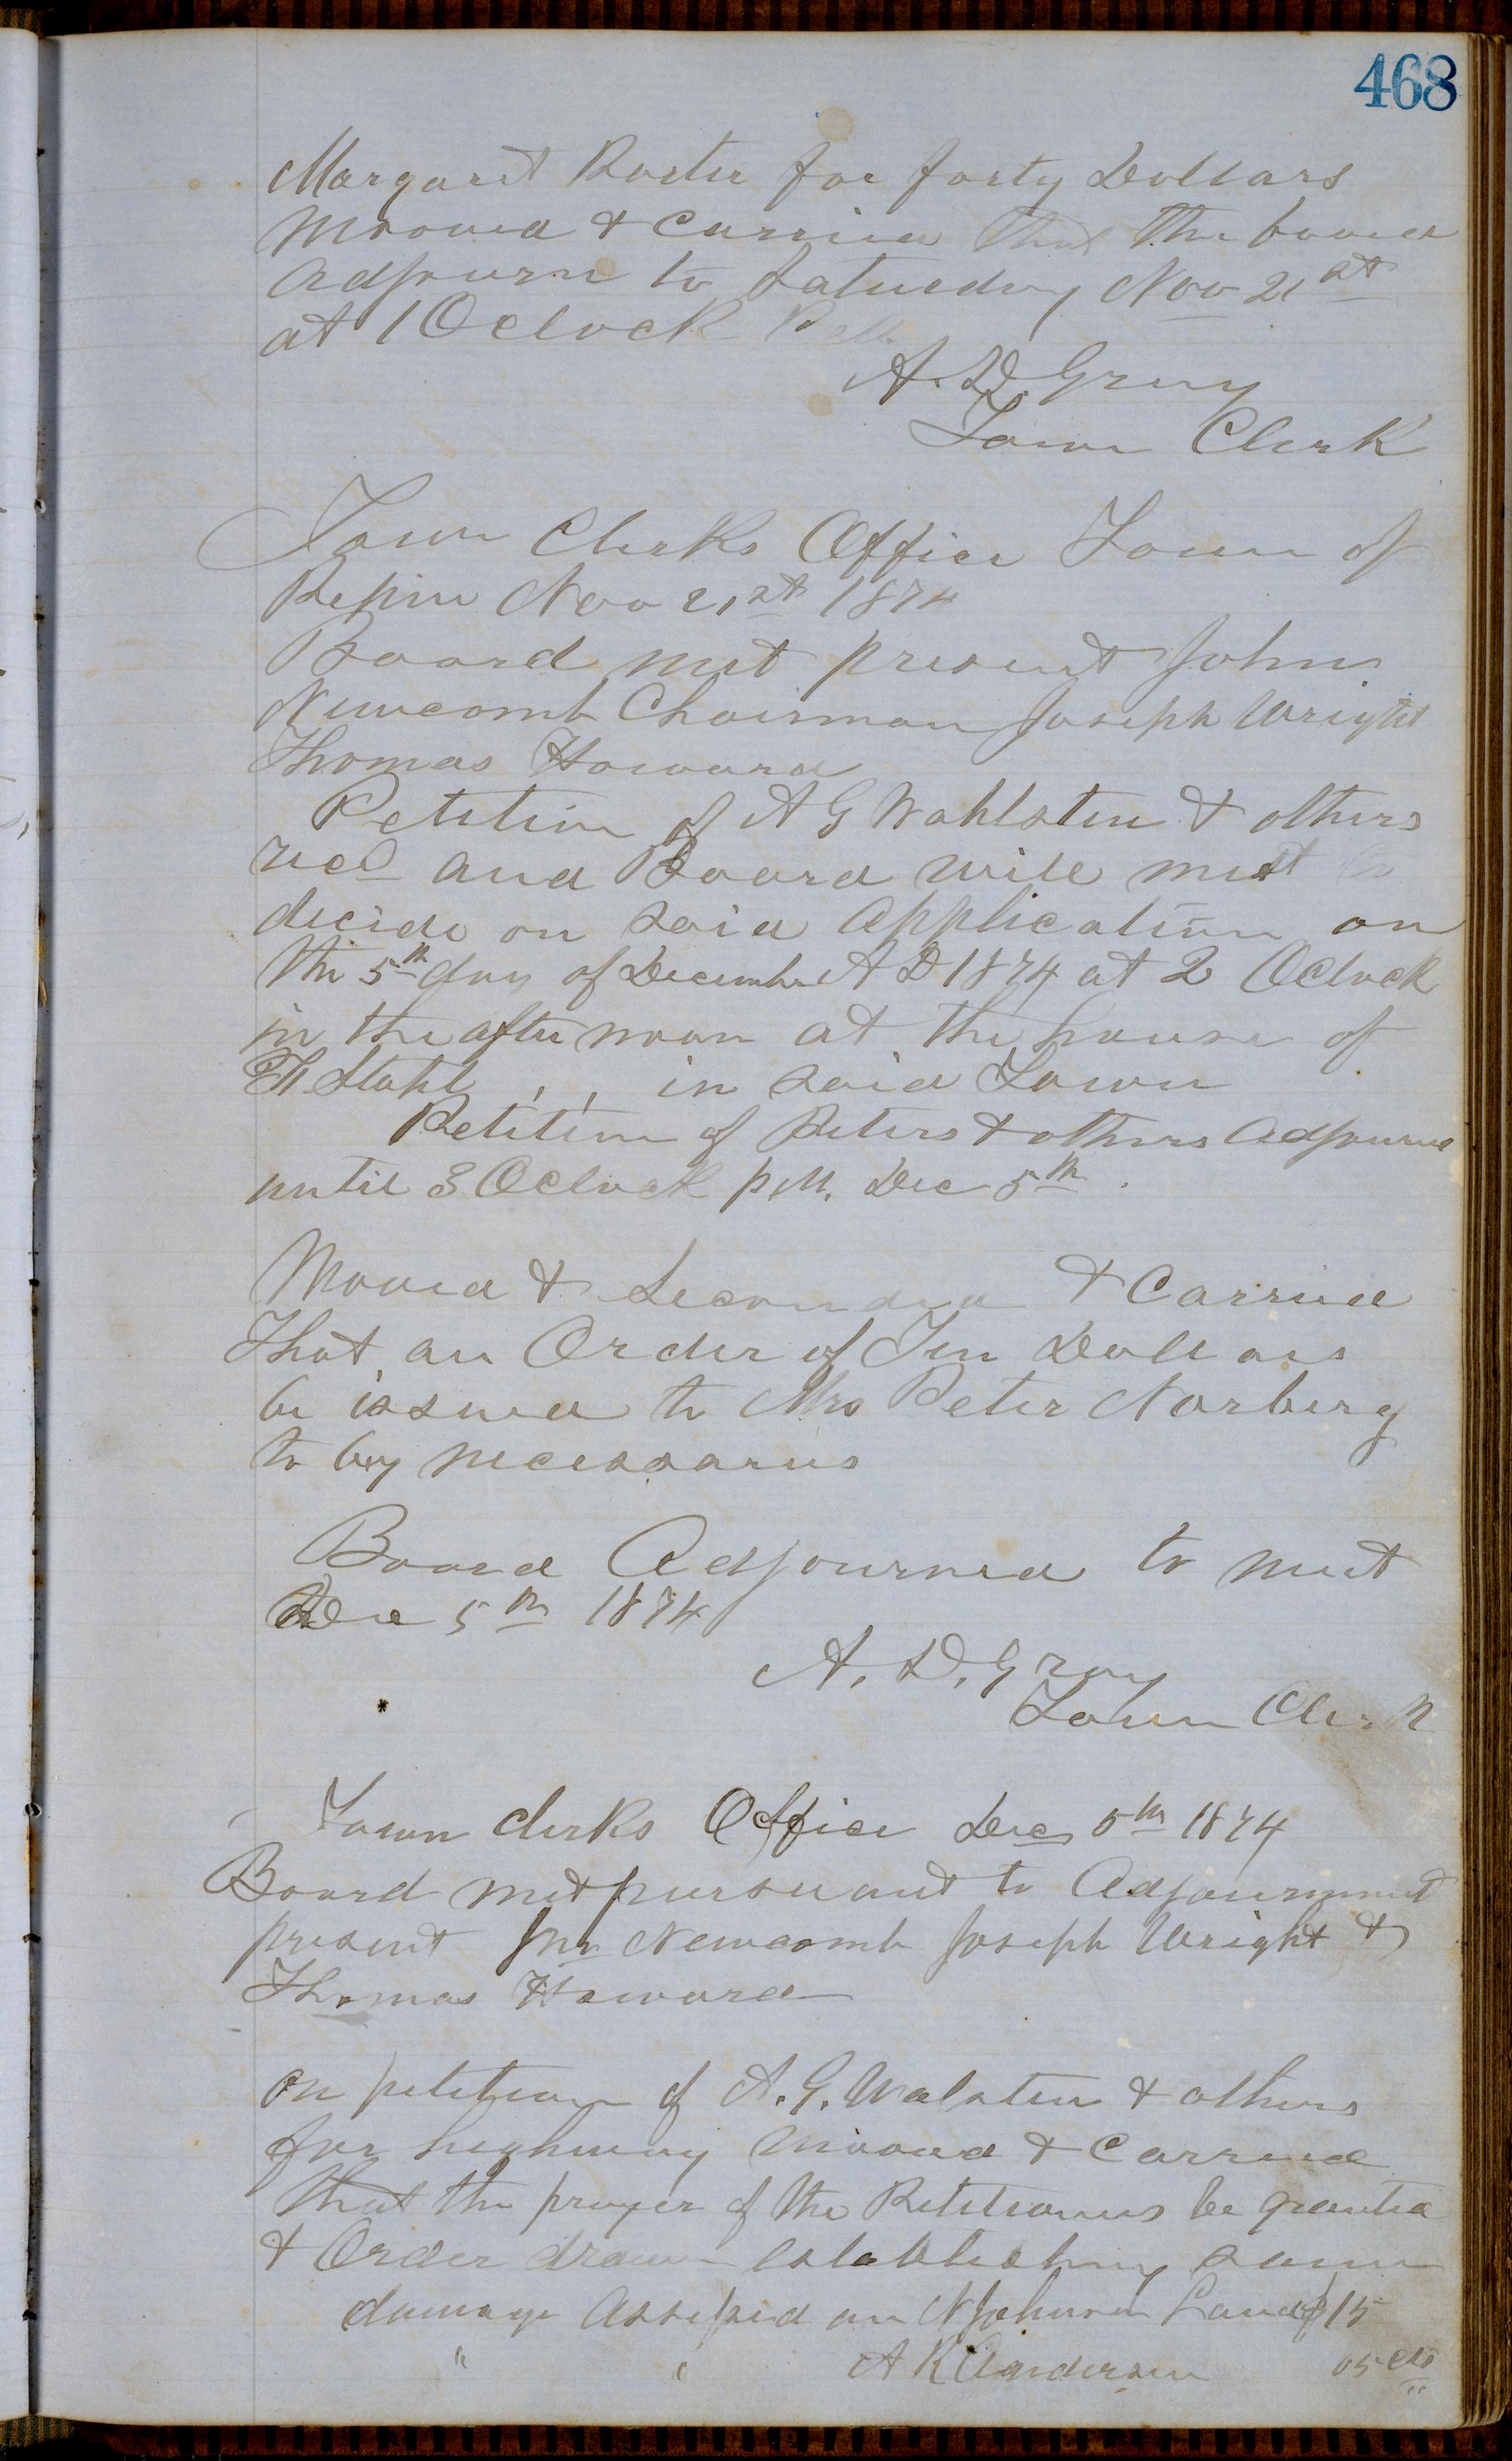 468
Margaret Roster for forty Dollars
Mooved & Carried that the board
adjourn to Saturday Nov 21st
at 1 Oclock P M.
A. D. Gray
Town Clerk
Town Clerks Office Town of
Pepin Nov 21st 1874
Board met present John
Newcomb Chairman Joseph Wright
Thomas Howard
Petition of A G Wahlsten & others
recd and Board will meet to
decide on said application on
the 5th day of December A D 1874 at 2 Oclock
in the after noon at the house of
Stahl , , in said Town
Petition of Peters & others adjourned
until 3 Oclock P M. Dec 5th .
Moved & Seconded & Carried
That an Order of Ten Dollars
be issued to Mrs Peter Norberg
to by necessaries
Board Adjourned to meet
Dec 5th 1874
A. D. Gray
Town Clerk
Town clerks Office Dec 5th 1874
Board met pursuant to Adjournment
present Jno Newcomb Joseph Wright &
Thomas Howard
on petition of A. G. Walsten & others
for highway mooved & Carried
that the prayer of the Petitioners be granted
& Order drawn establishing same
damage Assessed on N Johnson Land $15
" " A K Anderson 05 cts